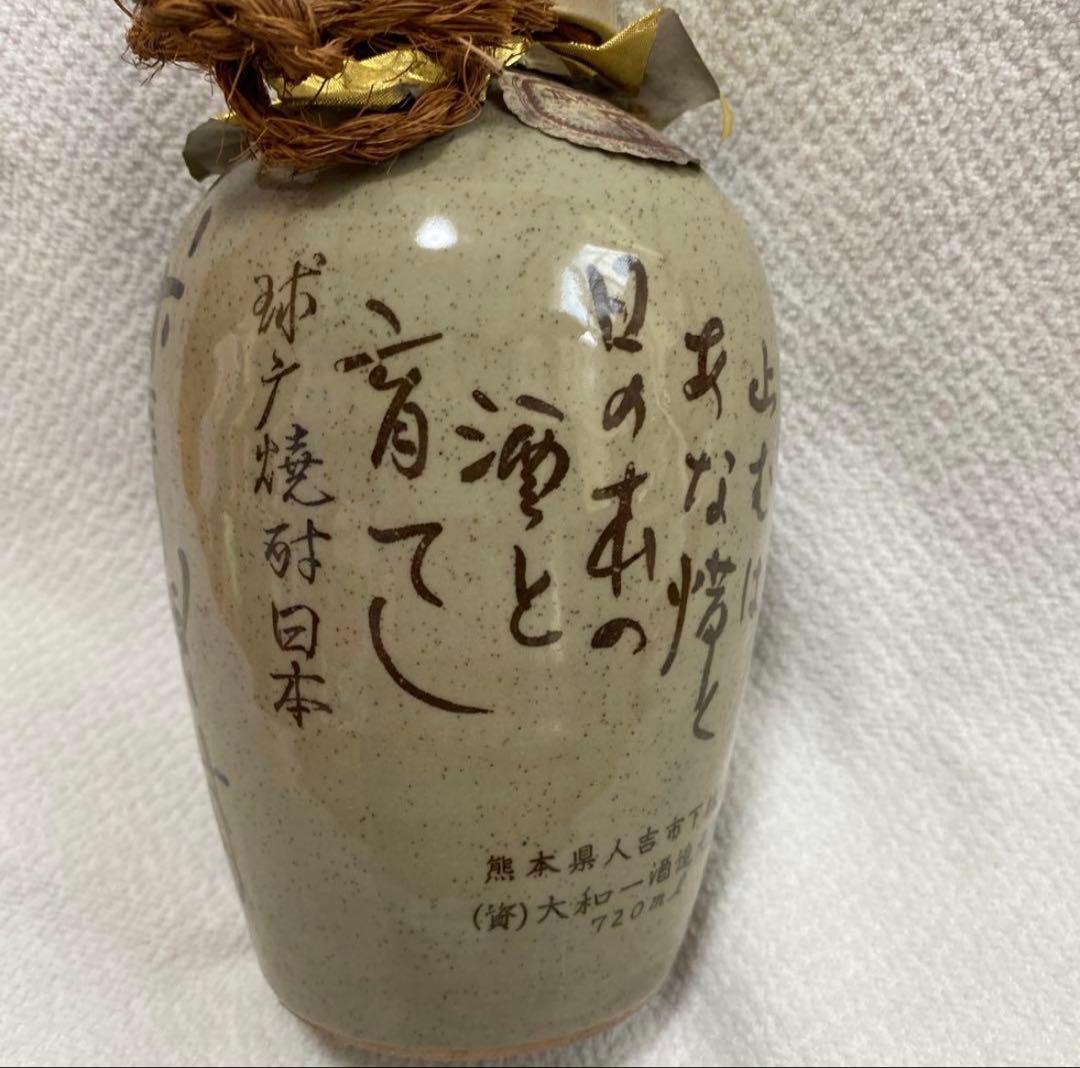 止むは
あな
日の本の
酒と
育てし
球广燒酎日本
熊本県人吉市下
(資)大和一酒造
720mℓ